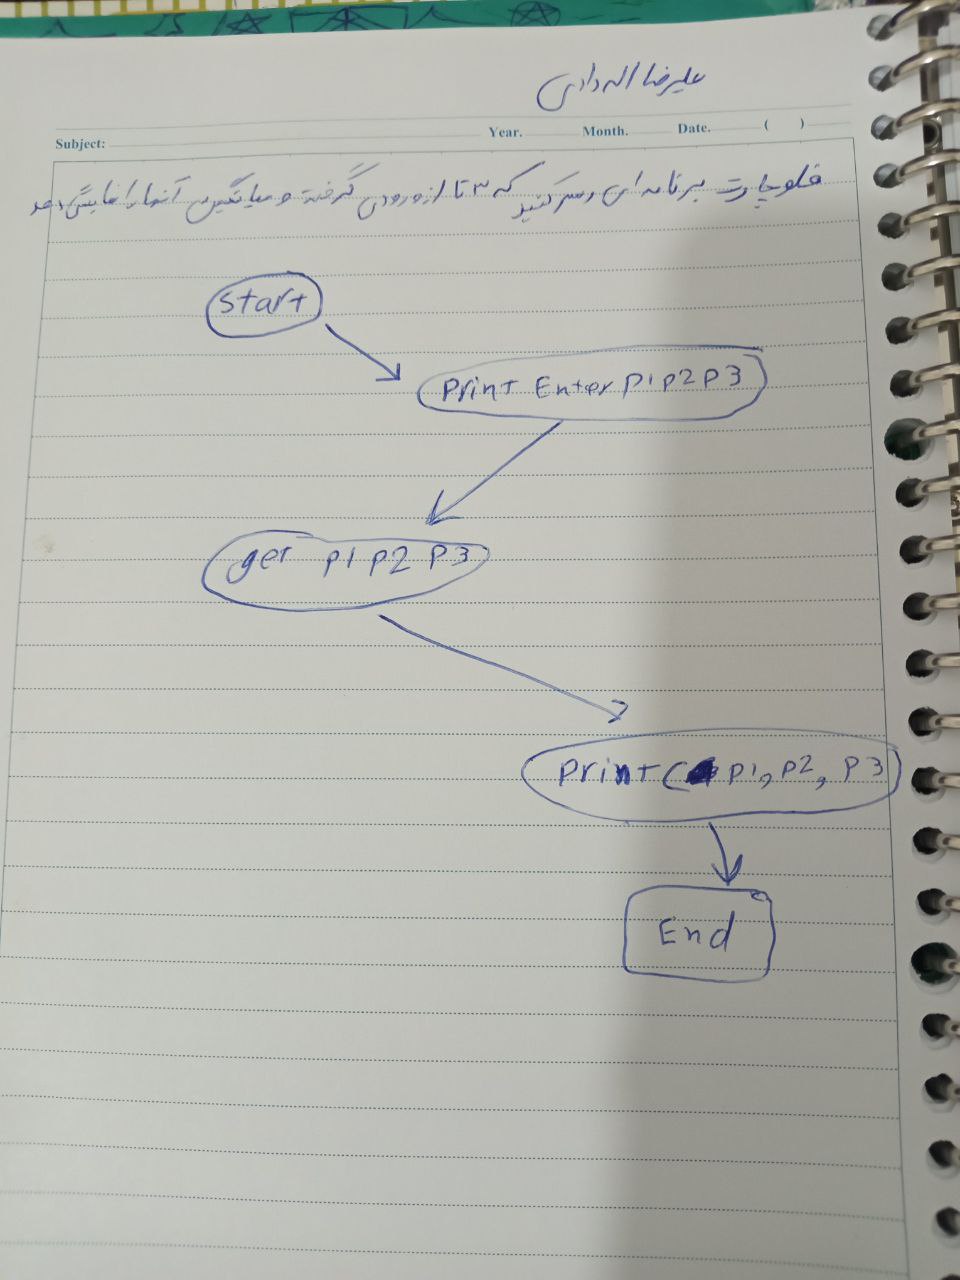 علیرضا اله دادی
Subject: Year. Month. Date. ( )
فلوچارت برنامه ای رسم کنید که ۳ تا از ورودی گرفته و میانگین آنها را نمایش دهد
Start
Print Enter p1 p2 p3
get p1 p2 p3
Print( p1, p2, p3
End